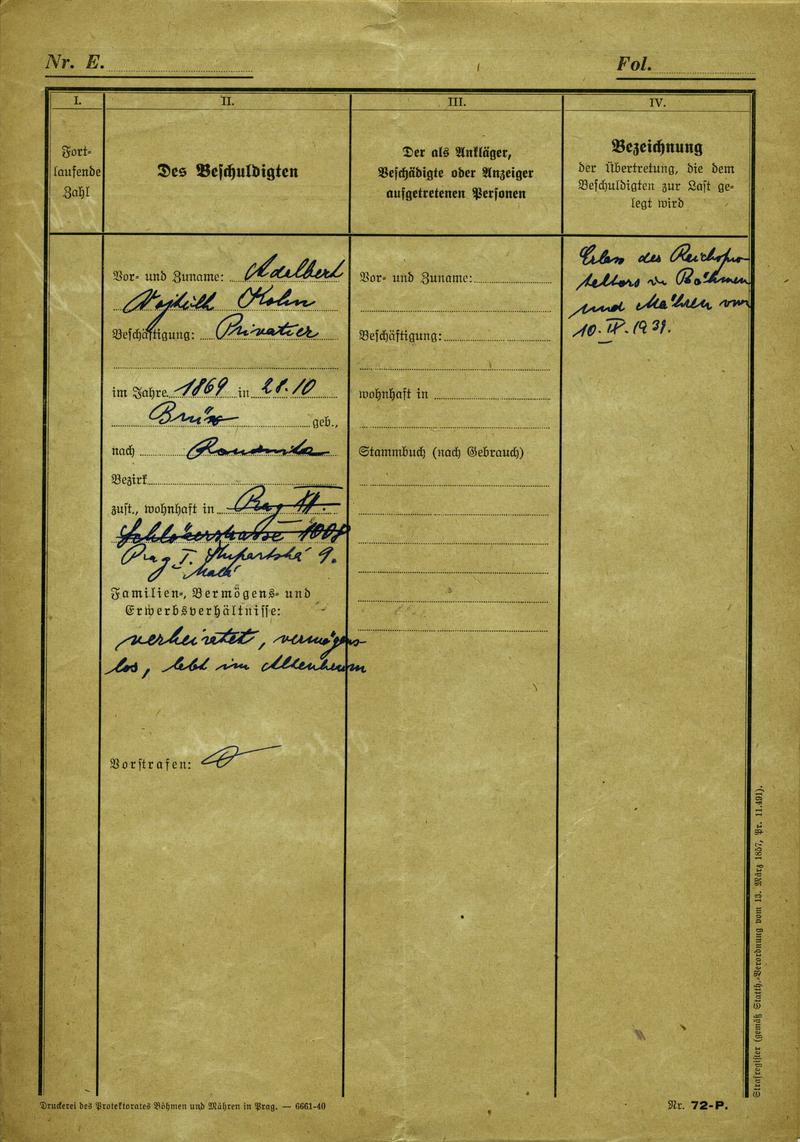 Nr. E.
Fol.
I.
II.
III.
IV.
Fort-
laufende
Zahl
Des Beschuldigten
Der als Ankläger,
Beschädigte oder Anzeiger
aufgetretenen Personen
Bezeichnung
der Übertretung, die dem
Beschuldigten zur Last ge-
legt wird
Vor- und Zuname: Adelbert
Kohn
Beschäftigung: Privatier
im Jahre 1869 in 28./10
Brüx geb.,
nach Raudnitz
Bezirk
zust., wohnhaft in Prag II.
Prag I. 9.
Familien-, Vermögens- und
Erwerbsverhältnisse:
verheiratet, vermögens-
los, lebt im Altersheim
Vorstrafen:
Vor- und Zuname:
Beschäftigung:
wohnhaft in
Stammbuch (nach Gebrauch)
Erlass des Reichspro-
tektors in Böhmen
und Mähren vom
10. 1939.
Strafregister (gemäß Statth.-Verordnung vom 13. März 1857, Pr. 11.491).
Druckerei des Protektorates Böhmen und Mähren in Prag. — 6661-40
Nr. 72-P.